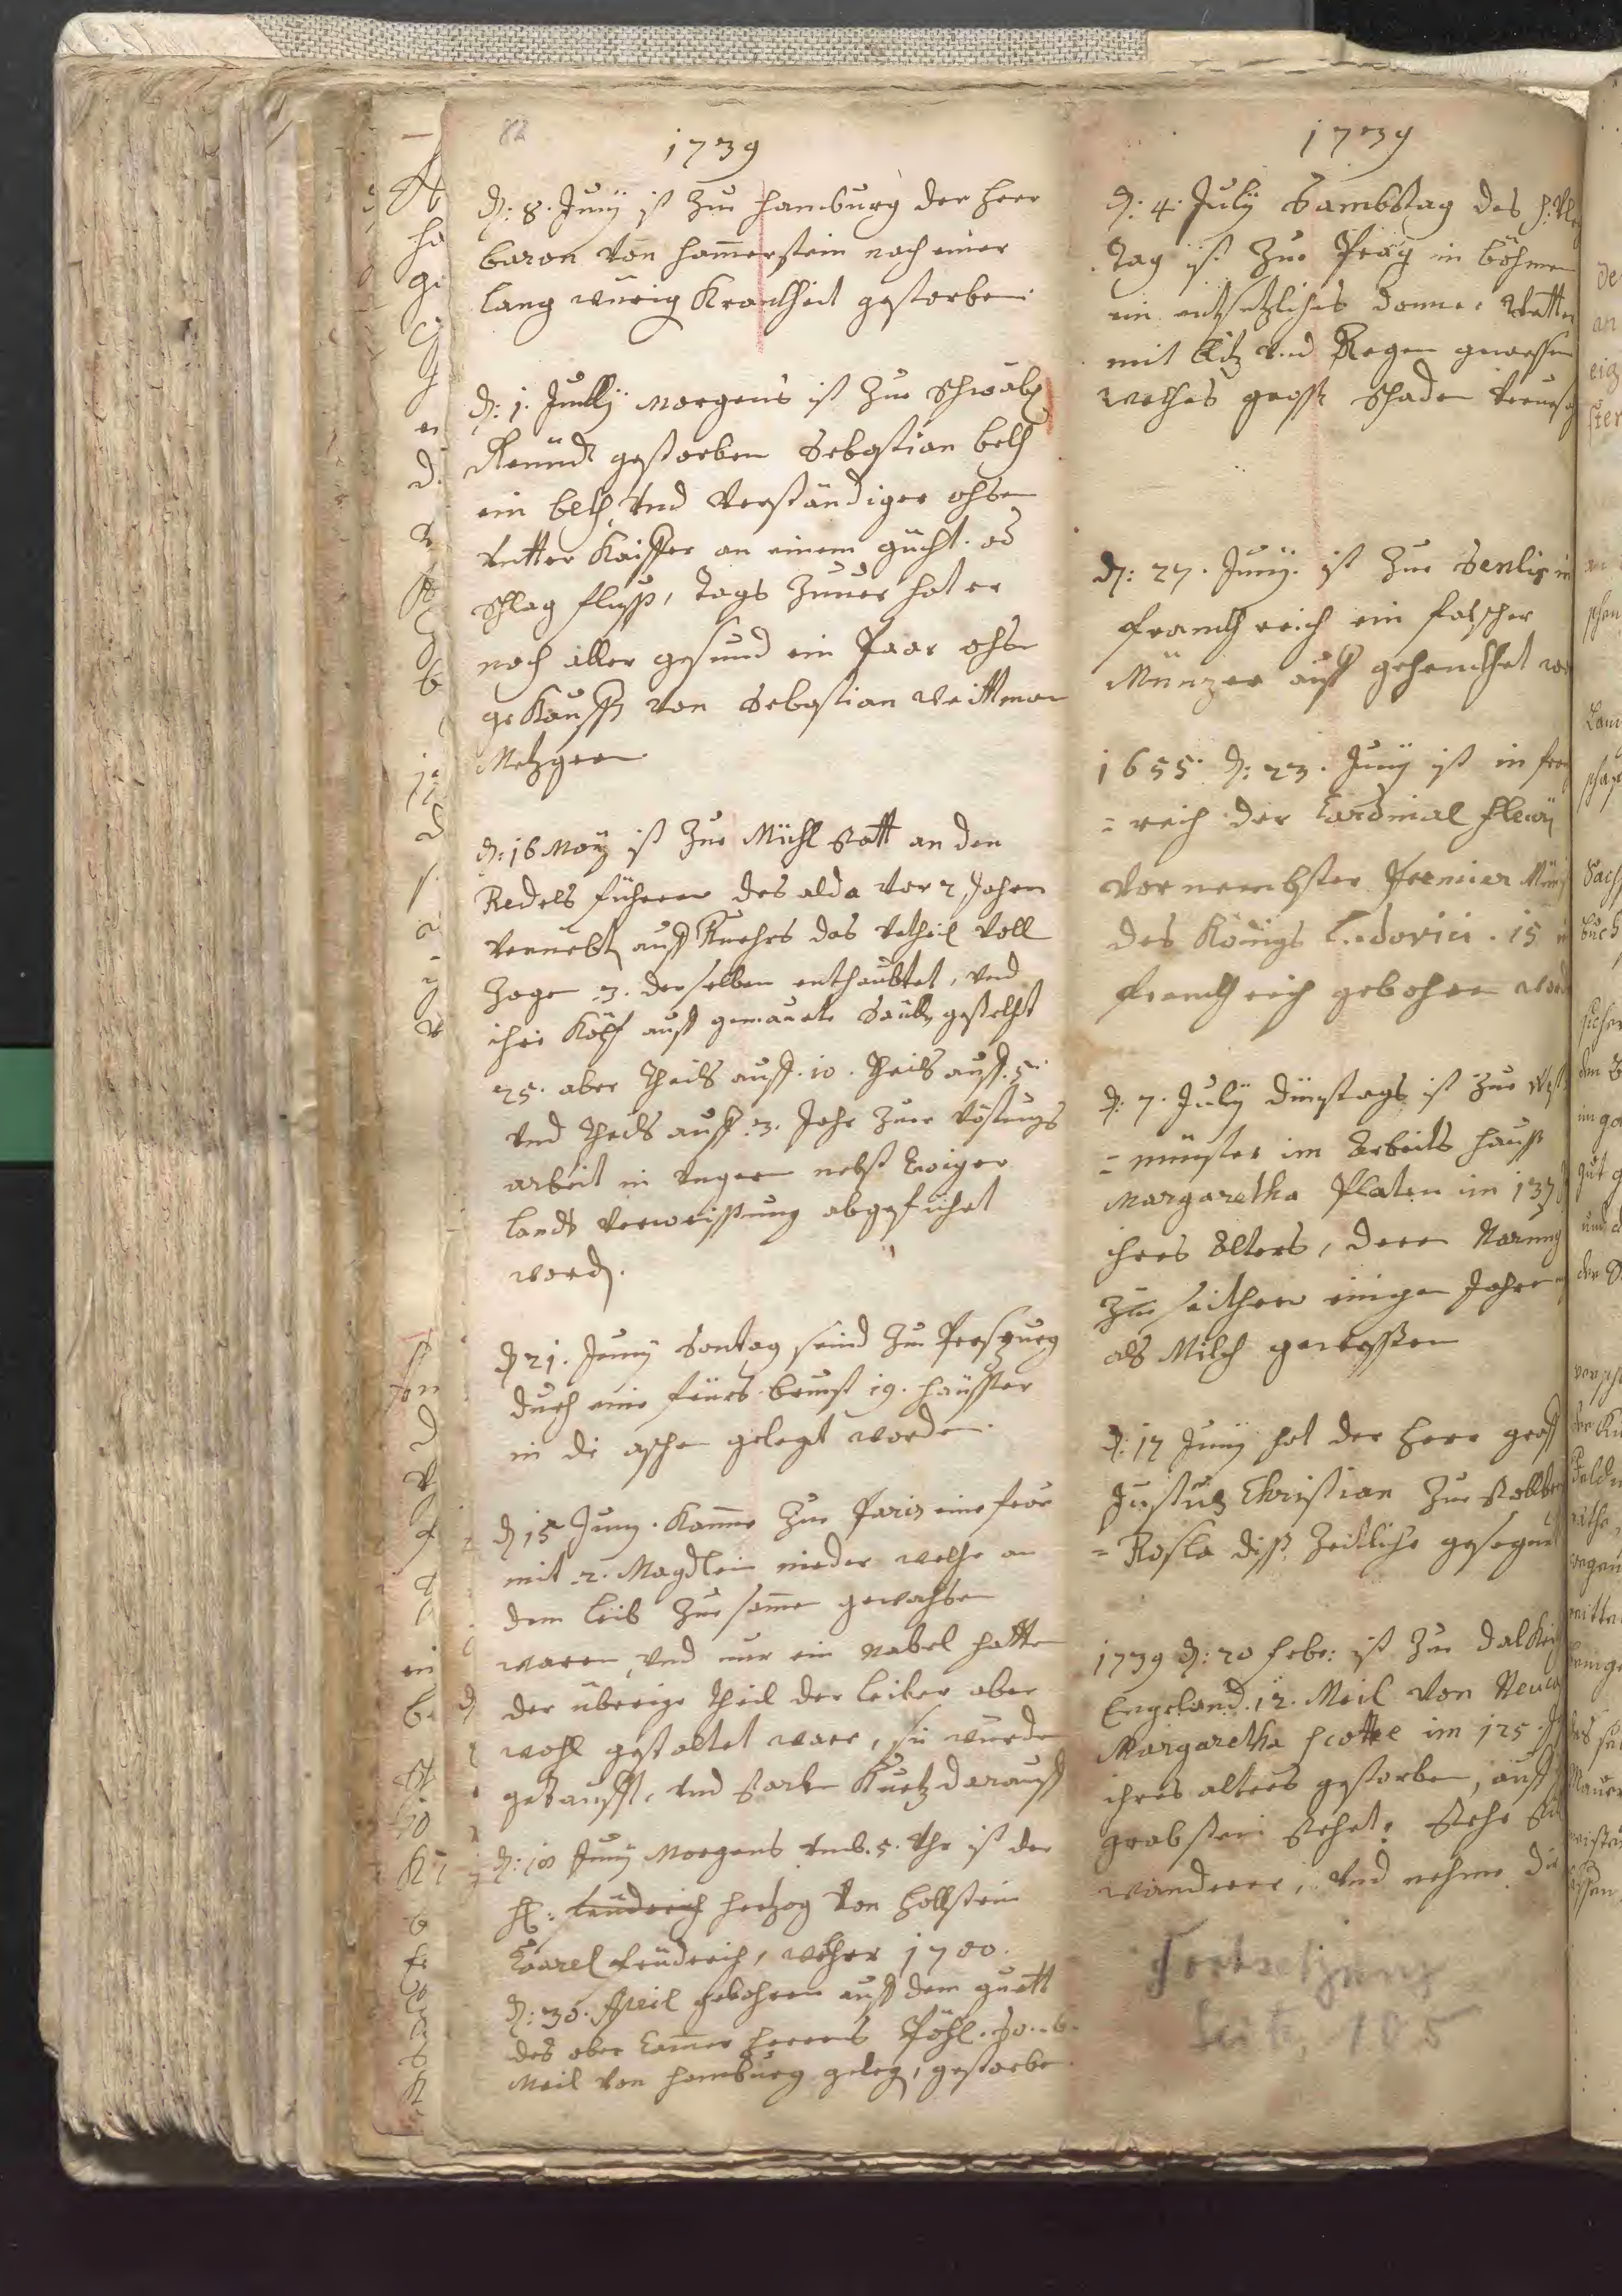 82
1739
d: 8. Junÿ ist zue hamburg der herr
baron von ham̄erstein nach einer
lang wirig Kranckheit gestorben.
d: 1. Jully Morgens ist zue Schwäb
Gemünd gestorben Sebastian beth
ein beth, vnd verständiger ohsen
vntter Kaiffer an einem gücht. od
schlag fluss, tags zuuor hat er
noch aller gesund ein Paar ohsen
gekaufft von Sebastian Veittman
Metzgern.
d: 16 Maÿ ist zue Mühl statt an den
Redels führern des alda vor 2 Jahren
veruebt auff Ruehrs das vrtheil voll
zogen 3. derselben enthaubtet, vnd
ihre Köpf auff gemaurte Säuln gestelht
25. aber theils auff. 10. theils auff. 5.
vnd theils auff. 3. Jahr zuer vöstungs
arbeit in vngarn nebst Ewiger
lands verweissung abgeführt
word.
d 21. Junÿ Sontag seind zue Presburg
durch eine feürs brunst 19. häusser
in die aschen gelegt worden.
d 15 Junÿ. Kam̄e zue Paris eine frau
mit 2. Magdlein nieder welche an
dem leib zue sam̄en gewachsen
waren, vnd nur ein Nabel hatten
der überige theil der leiber aber
wohl gestaltet ware, sie wurden
getaufft, vnd starben Kurtz darauff
d: 18 Junÿ Morgens vmb. 5. Uhr ist der
H: hertzog von hollstein
Carel friderich, welcher 1700.
d: 30. April gebohren auff dem guett
des ober Cam̄er herrens
Meil von hamburg geleg, gestorben.
1739
d: 4. Julÿ Sambstag des
tag ist zue Prag in böhmen
ein entsetzliches donner wetter
mit blitz vnd Regen gewessen
welches grosse schaden verursach
d: 27. Junÿ. ist zue Senlis in
franckreich ein falscher
Münzer auff gehenckhet wo
1655. d: 23. Junÿ ist in fran
= reich der Cardinal fleury
vornembster Premier Min
des Königs Ludovici. 15 in
franckreich gebohren word
d: 7. Julÿ dinstags ist zue West
= münster im Arbeits hauss
Margaretha Platen im 137
ihres Alters, deren Narung
zue seithero einigen Jahren
als Milch gewessen
d: 17 Junÿ hat der herr graff
Justus Christian zue stollber
= Rosla diss Zeitliche gesegnet
1739 d: 20 febr: ist zue dalkeit
Engeland. 12. Meil von Neuca
Margaretha scottee im 125. J
ihres alters gestorben, auff
grabstein stehet: stehe still
wanderer, vnd nehme die
Fortsetzung
Seite 185